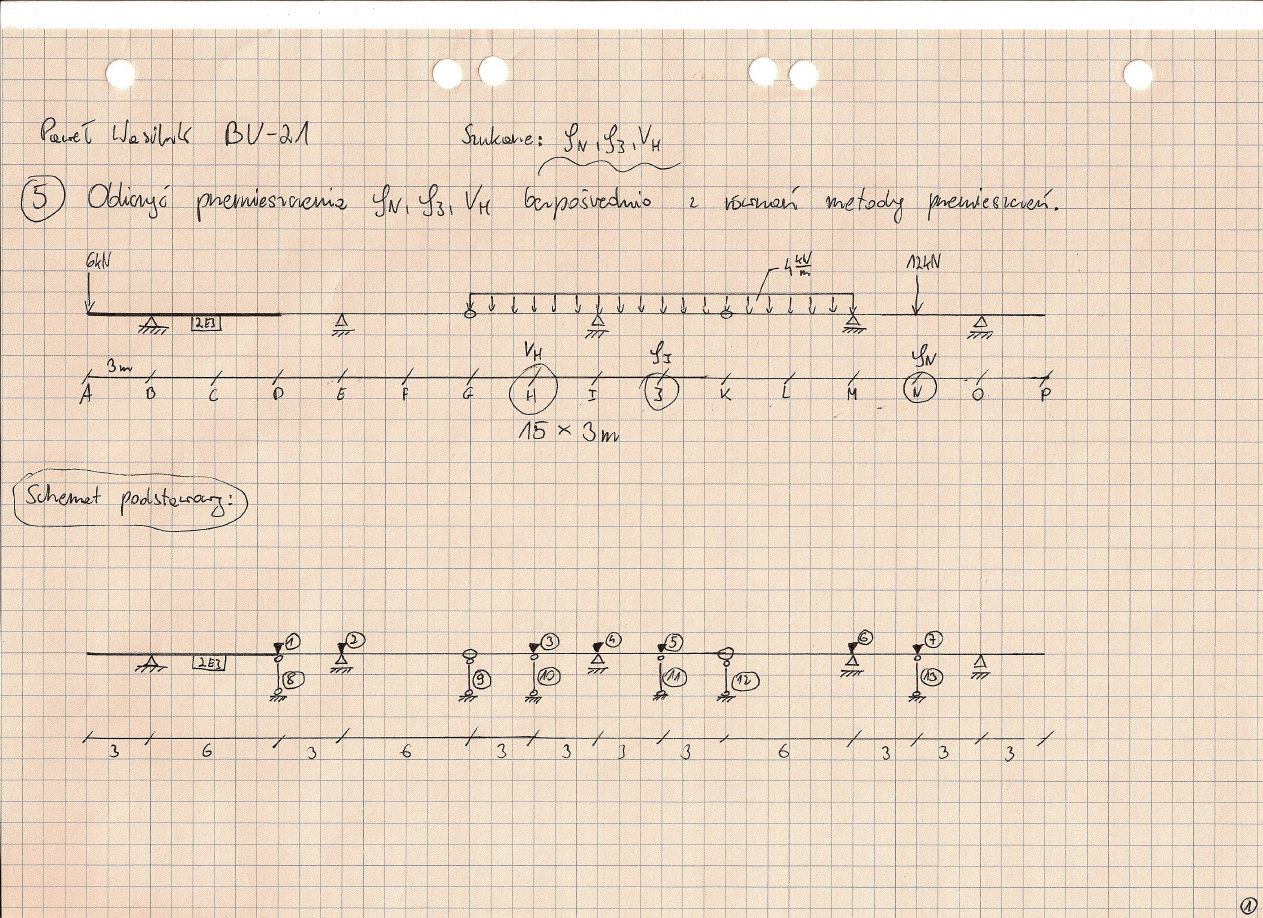 Paweł Wasiluk BV-21
Szukane: φN, φJ, VH
5 Obliczyć przemieszczenia φN, φJ, VH bezpośrednio z równań metody przemieszczeń.
6kN 4 kN/m 12kN
2EJ
3m VH φJ φN
A B C D E F G H I J K L M N O P
15 × 3m
Schemat podstawowy:
1 2 3 4 5 6 7
2EJ
8 9 10 11 12 13
3 6 3 6 3 3 3 3 6 3 3 3
1